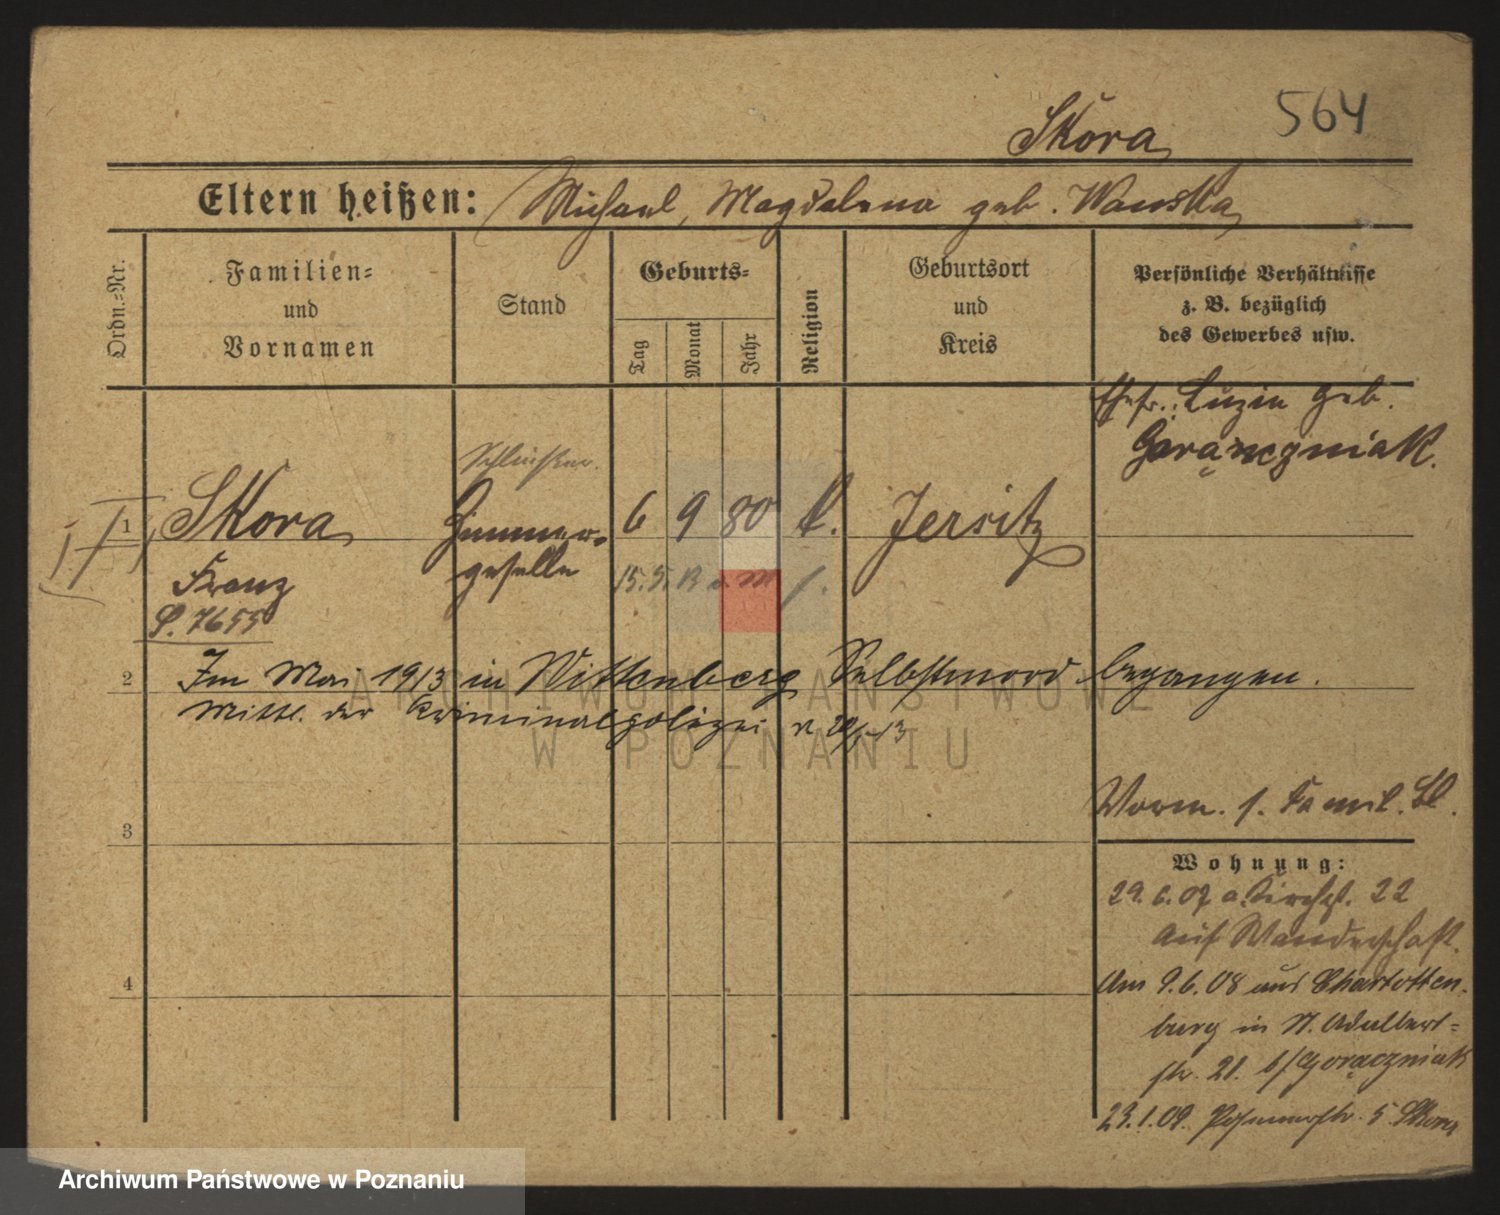 564
Skóra
Eltern heißen: Michael, Magdalena geb. Wanska
Ordn.=Nr.
Familien=
und
Vornamen
Stand
Geburts=
Tag
Monat
Jahr
Religion
Geburtsort
und
Kreis
Persönliche Verhältnisse
z. B. bezüglich
des Gewerbes usw.
Ehefr.: Luzie geb.
1
Skora
Zimmer=
6 9 80 k. Jersitz
Franz
geselle
15. 5.
P. 7655
2
Im Mai 1913 in Wittenberg Selbstmord begangen.
Mittl. der Kriminalpolizei
3
s. Famil. Bl.
Wohnung:
29. 6. 07 22
auf Wanderschaft.
4
Am 9. 6. 08 aus Charlotten=
burg in St. Adalbert=
str. 21. b/ Goraczniak
23. 1. 09. 5 Skora
ARCHIWUM PAŃSTWOWE
W POZNANIU
Archiwum Państwowe w Poznaniu